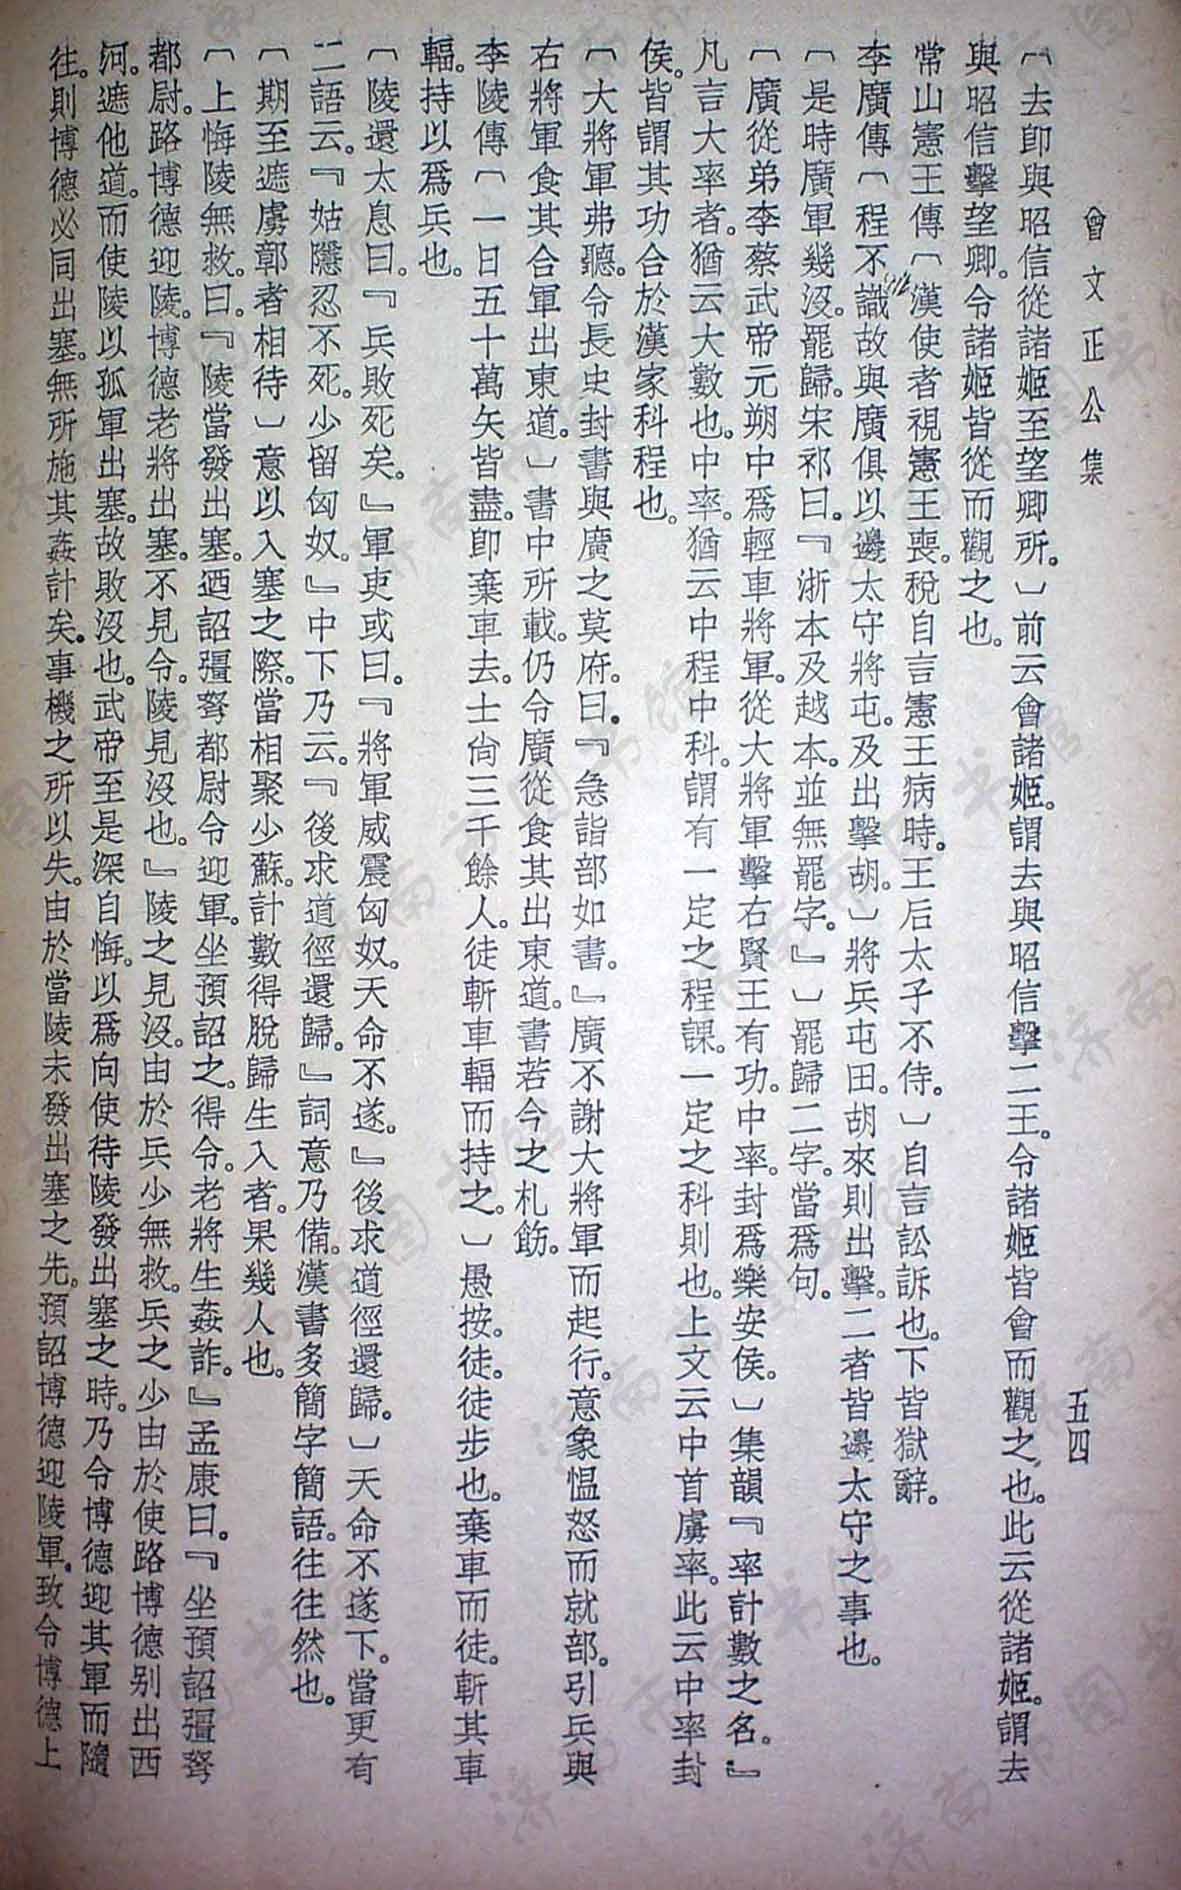 曾文正公集
五四
〔去卽與昭信從諸姬至望卿所。〕前云會諸姬。謂去與昭信擊二王。令諸姬皆會而觀之也。此云從諸姬。謂去
與昭信擊望卿。令諸姬皆從而觀之也。
常山憲王傳〔漢使者視憲王喪。稅自言憲王病時。王后太子不侍。〕自言訟訴也。下皆獄辭。
李廣傳〔程不識故與廣俱以邊太守將屯。及出擊胡。〕將兵屯田。胡來則出擊。二者皆邊太守之事也。
〔是時廣軍幾沒。罷歸。宋祁曰。『浙本及越本。並無罷字。』〕罷歸二字。當爲句。
〔廣從弟李蔡武帝元朔中爲輕車將軍。從大將軍擊右賢王有功。中率。封爲樂安侯。〕集韻『率計數之名。』
凡言大率者。猶云大數也。中率。猶云中程中科。謂有一定之程課。一定之科則也。上文云中首虜率。此云中率封
侯。皆謂其功合於漢家科程也。
〔大將軍弗聽。令長史封書與廣之莫府。曰。『急詣部如書。』廣不謝大將軍而起行。意象慍怒而就部。引兵與
右將軍食其合軍出東道。〕書中所載。仍令廣從食其出東道。書若今之札飭。
李陵傳〔一日五十萬矢皆盡。卽棄車去。士尙三千餘人。徒斬車輻而持之。〕愚按。徒。徒步也。棄車而徒。斬其車
輻。持以爲兵也。
〔陵還太息曰。『兵敗死矣。』軍吏或曰。『將軍威震匈奴。天命不遂。』後求道徑還歸。〕天命不遂下。當更有
二語云。『姑隱忍不死。少留匈奴。』中下乃云。『後求道徑還歸。』詞意乃備。漢書多簡字簡語。往往然也。
〔期至遮虜鄣者相待〕意以入塞之際。當相聚少蘇。計數得脫歸生入者。果幾人也。
〔上悔陵無救。曰。『陵當發出塞。迺詔彊弩都尉令迎軍。坐預詔之。得令。老將生姦詐。』孟康曰。『坐預詔彊弩
都尉。路博德迎陵。博德老將出塞。不見令。陵見沒也。』陵之見沒。由於兵少無救。兵之少由於使路博德別出西
河。遮他道。而使陵以孤軍出塞。故敗沒也。武帝至是深自悔。以爲向使待陵發出塞之時。乃令博德迎其軍而隨
往。則博德必同出塞。無所施其姦計矣。事機之所以失。由於當陵未發出塞之先。預詔博德迎陵軍。致令博德上